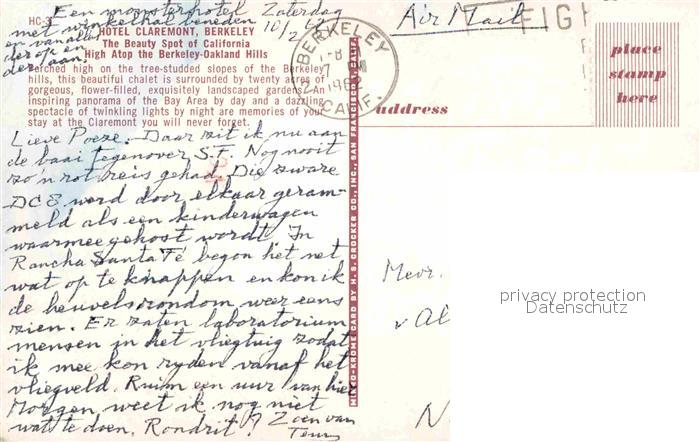 Een monsterhotel Zaterdag
met winkelhal beneden 10/2 62
en van alles
der op en
der aan!
HC-3
HOTEL CLAREMONT, BERKELEY
The Beauty Spot of California
High Atop the Berkeley-Oakland Hills
Perched high on the tree-studded slopes of the Berkeley
hills, this beautiful chalet is surrounded by twenty acres of
gorgeous, flower-filled, exquisitely landscaped gardens. An
inspiring panorama of the Bay Area by day and a dazzling
spectacle of twinkling lights by night are memories of your
stay at the Claremont you will never forget.
Lieve Poeze. Daar zit ik nu aan
de baai tegenover S.F. Nog nooit
zo'n rotreis gehad. Die zware
DC8 werd door elkaar geram-
meld als een kinderwagen
waarmee gehost wordt. In
Rancha Santa Fé begon het net
wat op te knappen en kon ik
de heuvels rondom weer eens
zien. Er zaten laboratorium
mensen in het vliegtuig zodat
ik mee kon ryden vanaf het
vliegveld. Ruim een uur van hier
Morgen weet ik nog niet
wat te doen. Rondrit? Zoen van
Teun
MIRRO-KROME CARD BY H. S. CROCKER CO., INC., SAN FRANCISCO 1, CALIF.
BERKELEY
CALIF.
Air Mail
EIGH
address
place
stamp
here
Mevr.
v Al
N
privacy protection
Datenschutz